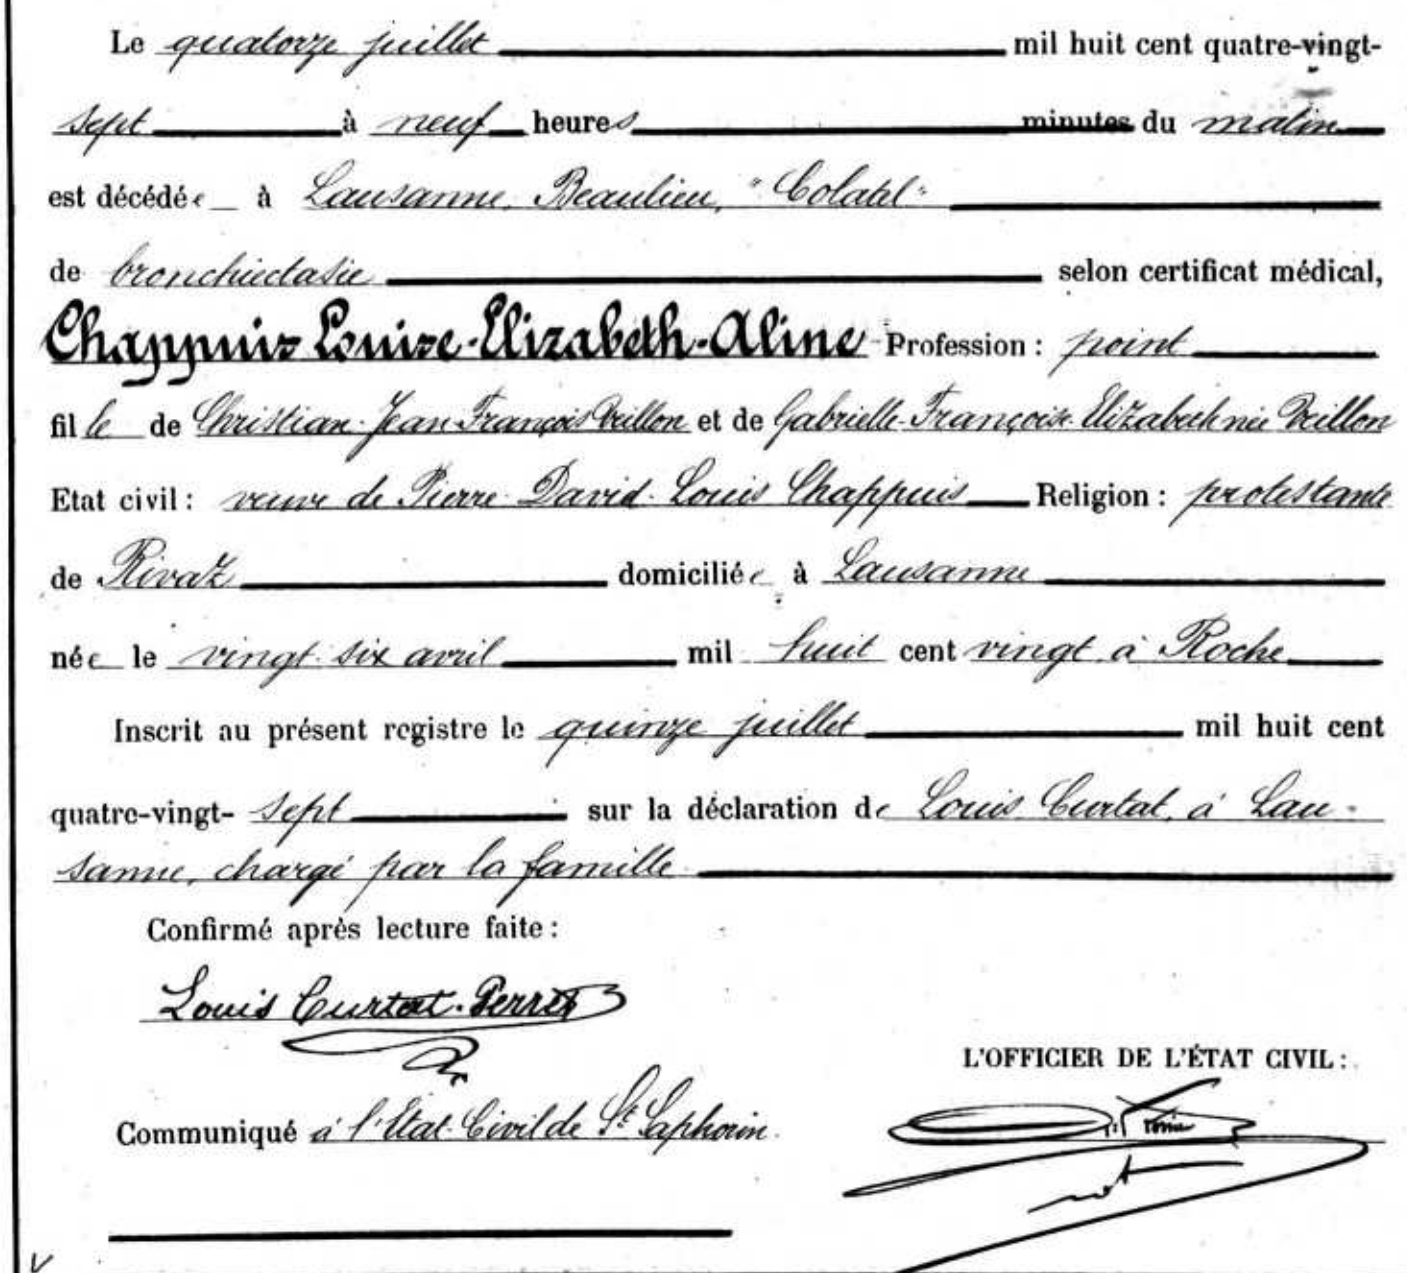 Le quatorze juillet mil huit cent quatre-vingt-
sept à neuf heures minutes du matin
est décédée à Lausanne, Beaulieu,
de bronchiectasie selon certificat médical,
Chappuis Louise-Elizabeth-Aline Profession : point
fille de Christian-Jean-François Veillon et de Gabrielle-Françoise-Elizabeth née Veillon
Etat civil : veuve de Pierre-David-Louis Chappuis Religion : protestante
de Rivaz domiciliée à Lausanne
née le vingt-six avril mil huit cent vingt à Roche
Inscrit au présent registre le quinze juillet mil huit cent
quatre-vingt-sept sur la déclaration de Louis Curtat, à Lau-
sanne, chargé par la famille
Confirmé après lecture faite :
Louis Curtat-Perret
L'OFFICIER DE L'ÉTAT CIVIL :
Communiqué à l'Etat-Civil de St Saphorin.